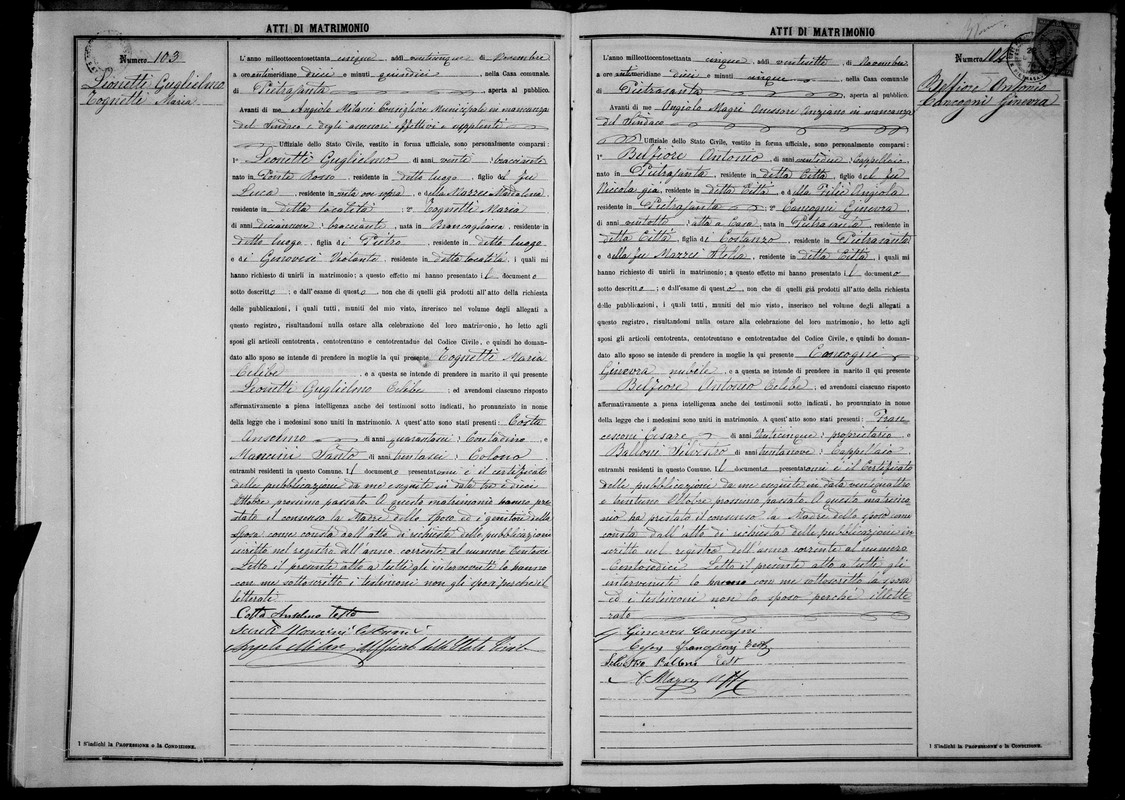 ATTI DI MATRIMONIO
Numero 103
Leonetti Guglielmo
Tognetti Maria
L'anno milleottocentosettanta cinque, addì venticinque di Novembre
a ore antimeridiane dieci e minuti quindici, nella Casa comunale
di Pietrasanta, aperta al pubblico.
Avanti di me Angiolo Milani Consigliere Municipale in mancanza
del Sindaco e degli assessori effettivi e supplenti
Uffiziale dello Stato Civile, vestito in forma ufficiale, sono personalmente comparsi:
1º Leonetti Guglielmo di anni venti, bracciante
nato in Ponte Rosso, residente in detto luogo, figlio del fu
Luca, residente in vita come sopra e della Mazzei Maddalena
residente in detta località; 2º Tognetti Maria
di anni diciannove, bracciante, nata in Brancagliana, residente in
detto luogo, figlia di Pietro, residente in detto luogo
e di Genovesi Violante, residente in detta località, i quali mi
hanno richiesto di unirli in matrimonio; a questo effetto mi hanno presentato il documento
sotto descritto; e dall'esame di questo, non che di quelli già prodotti all'atto della richiesta
delle pubblicazioni, i quali tutti, muniti del mio visto, inserisco nel volume degli allegati a
questo registro, risultandomi nulla ostare alla celebrazione del loro matrimonio, ho letto agli
sposi gli articoli centotrenta, centotrentuno e centotrentadue del Codice Civile, e quindi ho doman-
dato allo sposo se intende di prendere in moglie la qui presente Tognetti Maria
Celibe, e a questa se intende di prendere in marito il qui presente
Leonetti Guglielmo Celibe; ed avendomi ciascuno risposto
affermativamente a piena intelligenza anche dei testimoni sotto indicati, ho pronunziato in nome
della legge che i medesimi sono uniti in matrimonio. A quest'atto sono stati presenti: Costa
Anselmo di anni quarantasei, Contadino, e
Mancini Santo di anni trentasei, Colono,
entrambi residenti in questo Comune. Il documento presentatomi è il certificato
delle pubblicazioni da me eseguite in date tre e dieci
Ottobre prossimo passato. A questo matrimonio hanno pre-
stato il consenso la Madre dello sposo, ed i genitori della
sposa come consta dall'atto di richiesta delle pubblicazioni
iscritto nel registro dell'anno corrente al numero
Letto il presente atto a tutti gli intervenuti lo hanno
con me sottoscritto i testimoni non gli sposi perché il-
letterati
Costa Anselmo Testo
Angelo Milani Uffiziale dello Stato Civile
1 S'indichi la PROFESSIONE o la CONDIZIONE.
ATTI DI MATRIMONIO
Numero 104
Belfiore Antonio
Cancogni Ginevra
L'anno milleottocentosettanta cinque, addì ventisette di Novembre
a ore antimeridiane dieci e minuti cinque, nella Casa comunale
di Pietrasanta, aperta al pubblico.
Avanti di me Angiolo Magri Assessore Anziano in mancanza
del Sindaco
Uffiziale dello Stato Civile, vestito in forma ufficiale, sono personalmente comparsi:
1º Belfiore Antonio, di anni ventidue, Cappellaio
nato in Pietrasanta, residente in detta Città, figlio del fu
Niccola già, residente in detta Città e della Pilli Angiola
residente in Pietrasanta; 2º Cancogni Ginevra
di anni ventotto, atta a Casa, nata in Pietrasanta, residente in
detta Città, figlia di Costanzo, residente in Pietrasanta
e della fu Mazzei Stella, residente in detta Città, i quali mi
hanno richiesto di unirli in matrimonio; a questo effetto mi hanno presentato il documento
sotto descritto; e dall'esame di questo, non che di quelli già prodotti all'atto della richiesta
delle pubblicazioni, i quali tutti, muniti del mio visto, inserisco nel volume degli allegati a
questo registro, risultandomi nulla ostare alla celebrazione del loro matrimonio, ho letto agli
sposi gli articoli centotrenta, centotrentuno e centotrentadue del Codice Civile, e quindi ho doman-
dato allo sposo se intende di prendere in moglie la qui presente Cancogni
Ginevra nubile, e a questa se intende di prendere in marito il qui presente
Belfiore Antonio Celibe; ed avendomi ciascuno risposto
affermativamente a piena intelligenza anche dei testimoni sotto indicati, ho pronunziato in nome
della legge che i medesimi sono uniti in matrimonio. A quest'atto sono stati presenti: Fran-
cesconi Cesare di anni Venticinque, proprietario, e
Balloni Silvestro di anni trentanove, Cappellaio,
entrambi residenti in questo Comune. Il documento presentatomi è il Certificato
delle pubblicazioni da me eseguite in date ventiquattro
e trentuno Ottobre prossimo passato. A questo matrimo-
nio ha prestato il consenso la Madre dello sposo come
consta dall'atto di richiesta delle pubblicazioni in-
scritto nel registro dell'anno corrente al numero
Centosedici. Letto il presente atto a tutti gli
intervenuti lo hanno con me sottoscritto la sposa
ed i testimoni non lo sposo perché illette-
rato
Ginevra Cancogni
Silvestro Balloni Test
A Magri Uffle
1 S'indichi la PROFESSIONE o la CONDIZIONE.